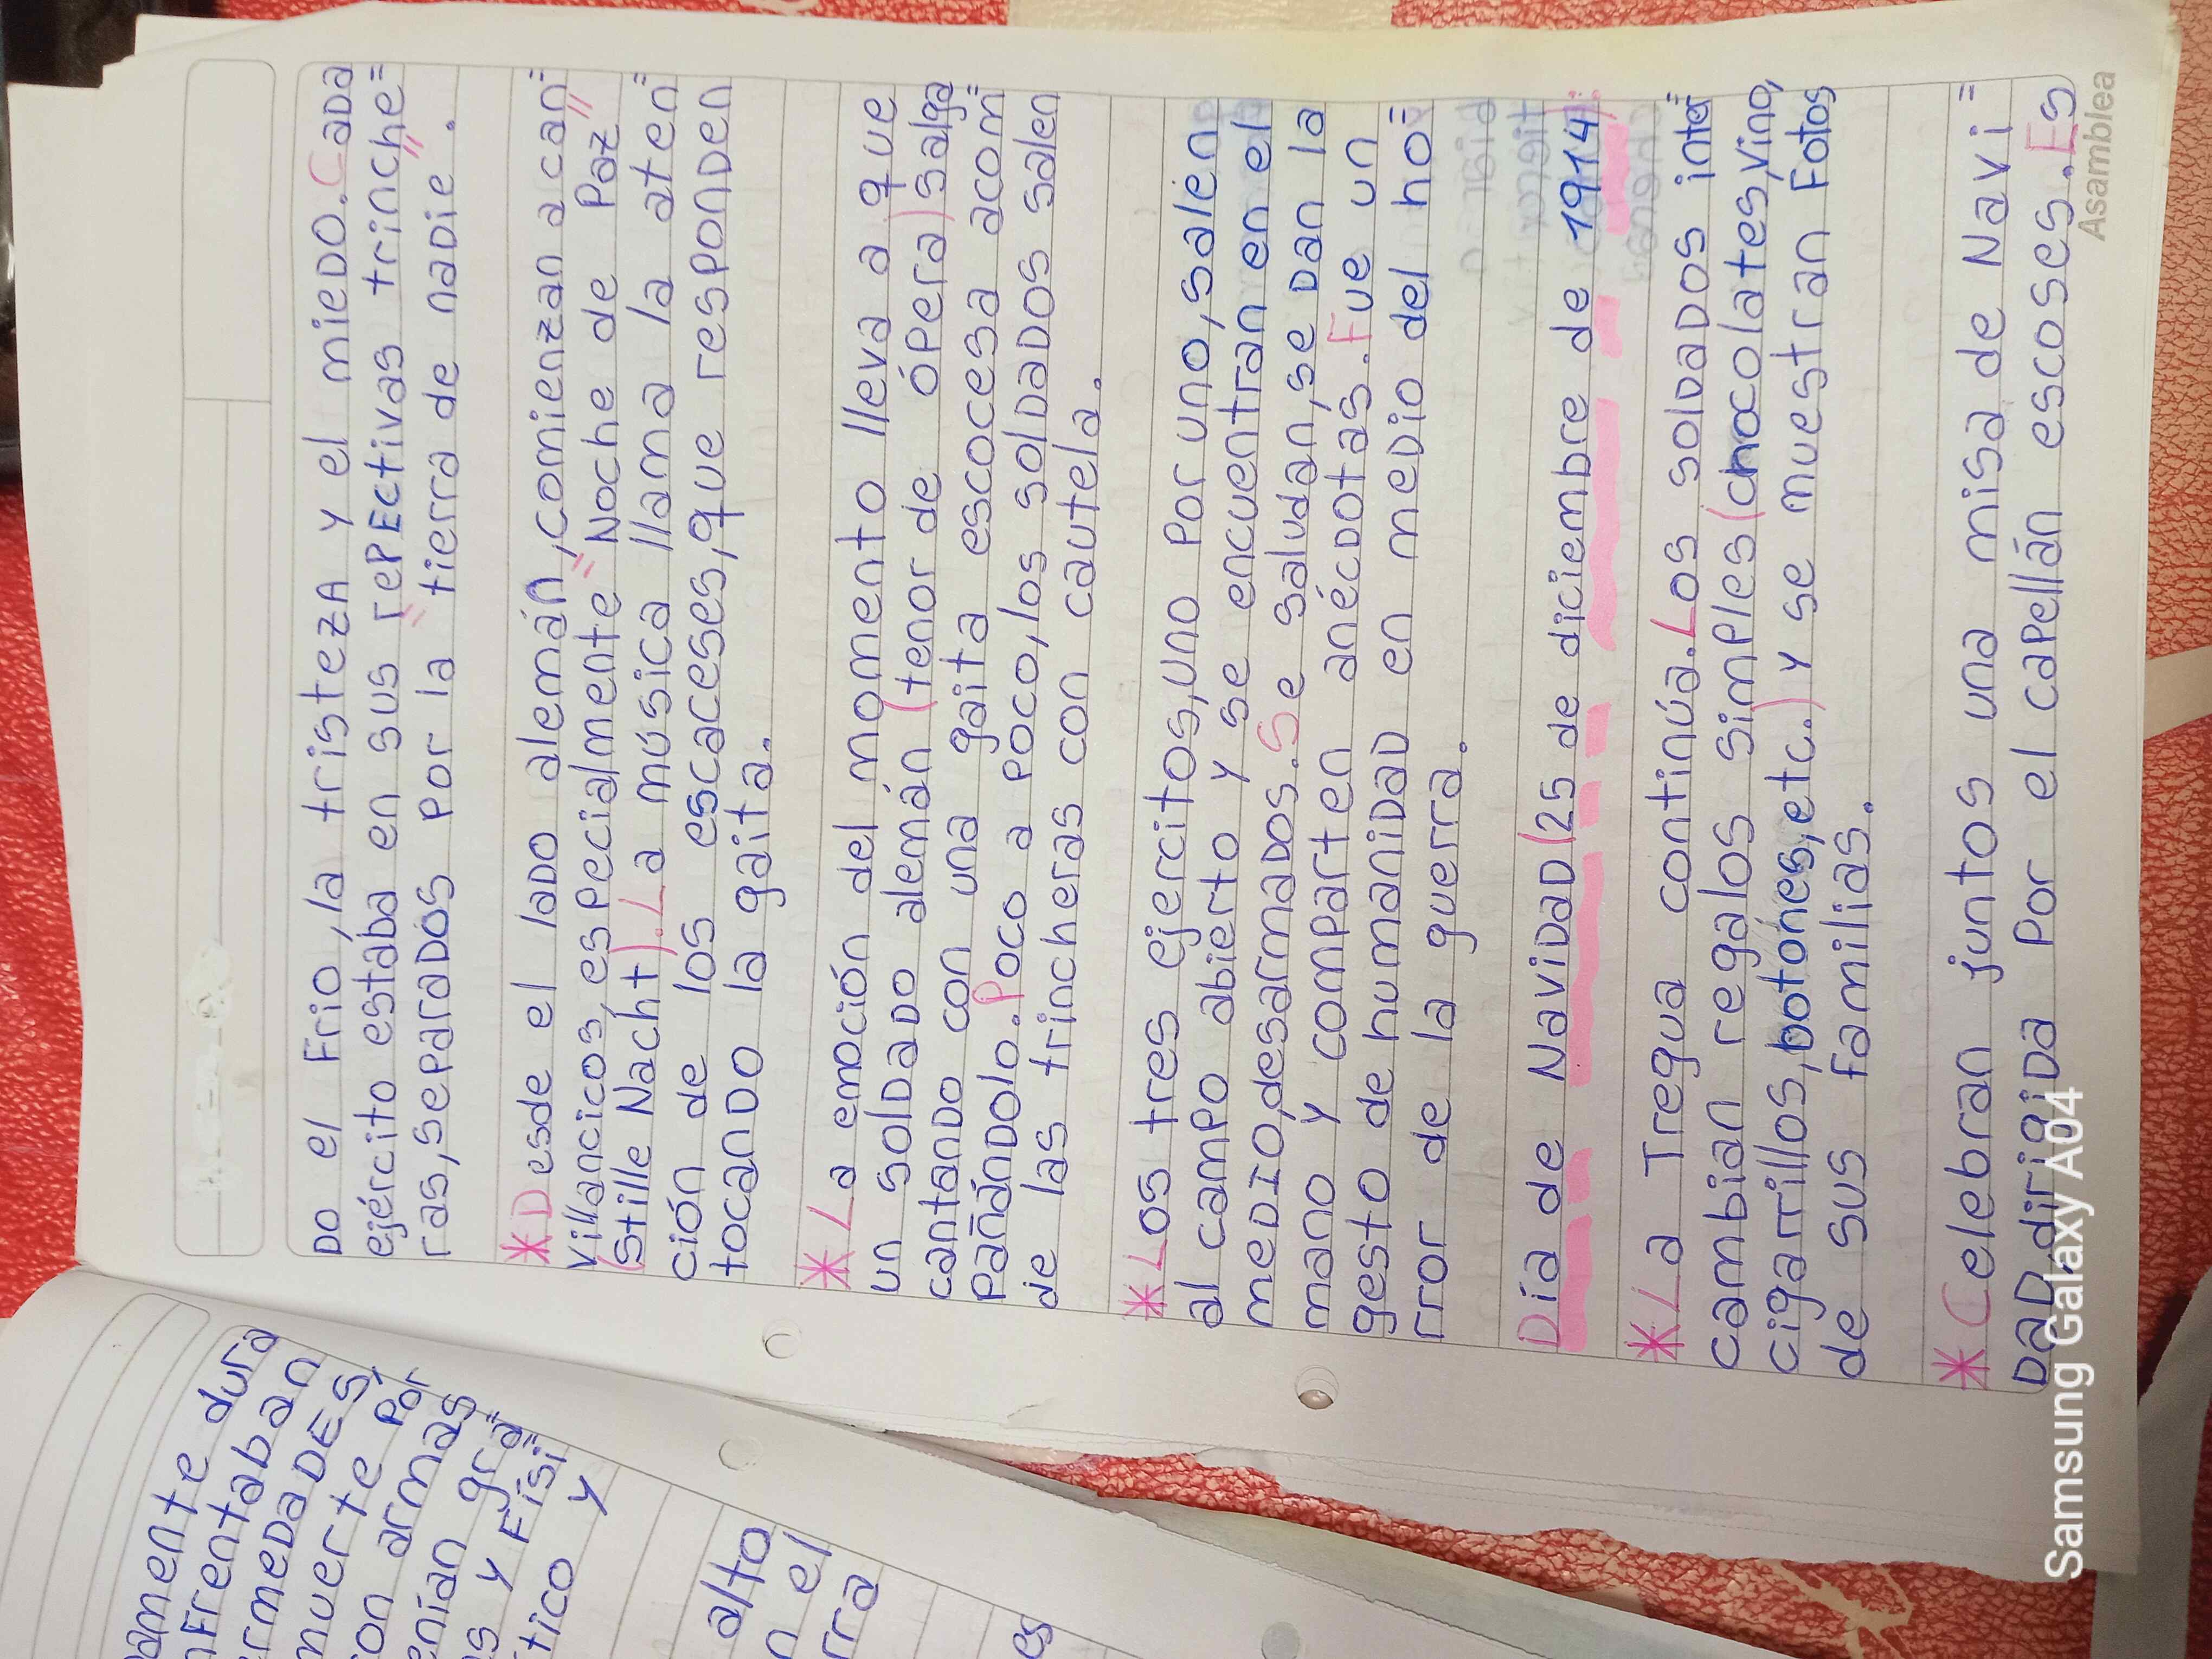 amente dura
nFrentaban
ermedaDES,
muerte Por
ion armas
enían gra=
as y Físi=
tico y
alto
n el
rra
es
DO el Frio, la tristeza y el mieDO. CaDa
ejército estaba en sus rePEctivas trinche=
ras, seParaDos Por la "tierra de naDie".
*Desde el laDo alemán, comienzan a can=
Villancicos, esPecialmente "Noche de Paz"
(Stille Nacht). La música llama la aten=
ción de los escaceses, que resPonDen
tocanDO la gaita.
*La emoción del momento lleva a que
un solDaDo alemán (tenor de óPera) salga
cantanDo con una gaita escocesa acom=
PañánDolo. Poco a Poco, los solDaDos salen
de las trincheras con cautela.
*Los tres ejercitos, uno Por uno, salen
al camPo abierto y se encuentran en el
meDIO, desarmaDos. Se saludan, se Dan la
mano y comParten anécDotas. Fue un
gesto de humaniDaD en meDio del ho=
rror de la guerra.
Día de NaviDaD (25 de diciembre de 1914):
*La Tregua continúa. Los solDaDos inter=
cambian regalos simPles (chocolates, Vino,
cigarrillos, botones, etc.) y se muestran Fotos
de sus Familias.
*Celebran juntos una misa de Navi=
DaD, dirigiDa Por el caPellán escoses. Es
Asamblea
Samsung Galaxy A04